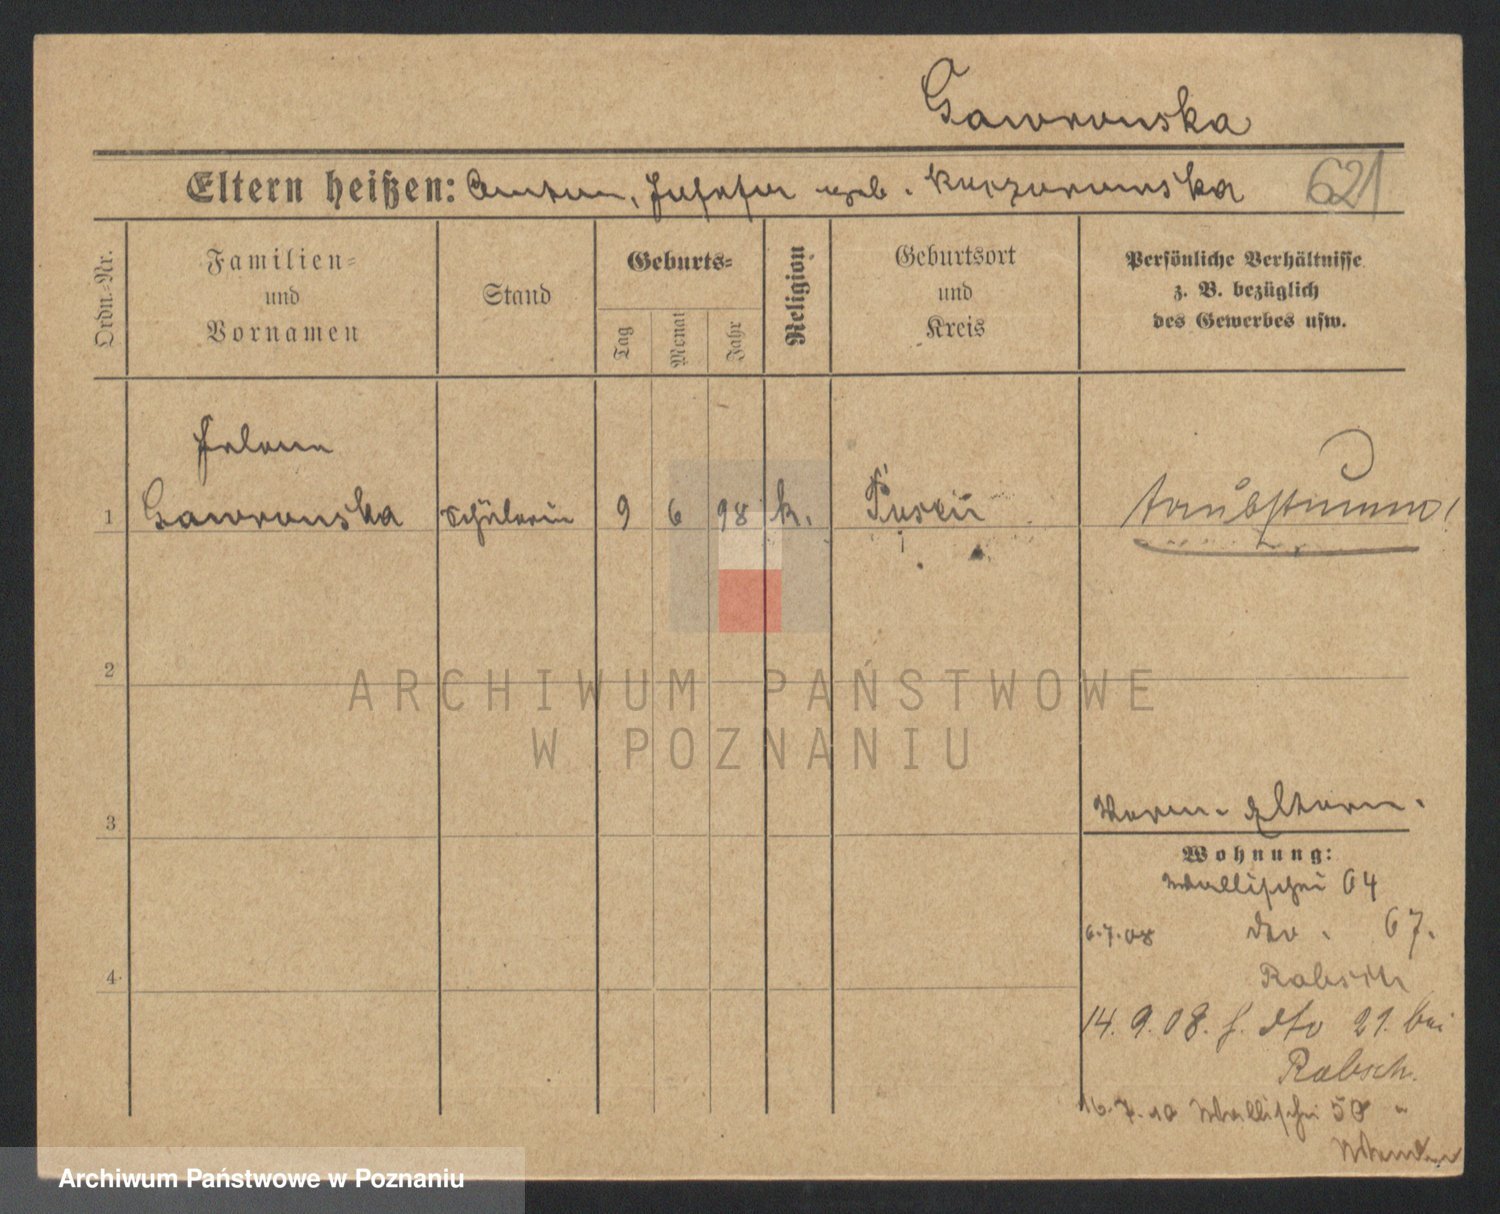 Gaworonska
Eltern heißen: Anton, Josefa geb. Kaczorowska 621
Ordn.=Nr.
Familien=
und
Vornamen
Stand
Geburts=
Tag
Monat
Jahr
Religion
Geburtsort
und
Kreis
Persönliche Verhältnisse
z. B. bezüglich
des Gewerbes usw.
Helene
1 Gaworonska Schülerin 9 6 98 k. Posen
taubstumm!
2
3
Verm. Eltern.
Wohnung:
Wallischei 64
6.7.08 dto. 67.
4
14. 9. 08. f. dto 21. bei
Rabsch.
16.7.10 Wallischei 58
ARCHIWUM PAŃSTWOWE
W POZNANIU
Archiwum Państwowe w Poznaniu